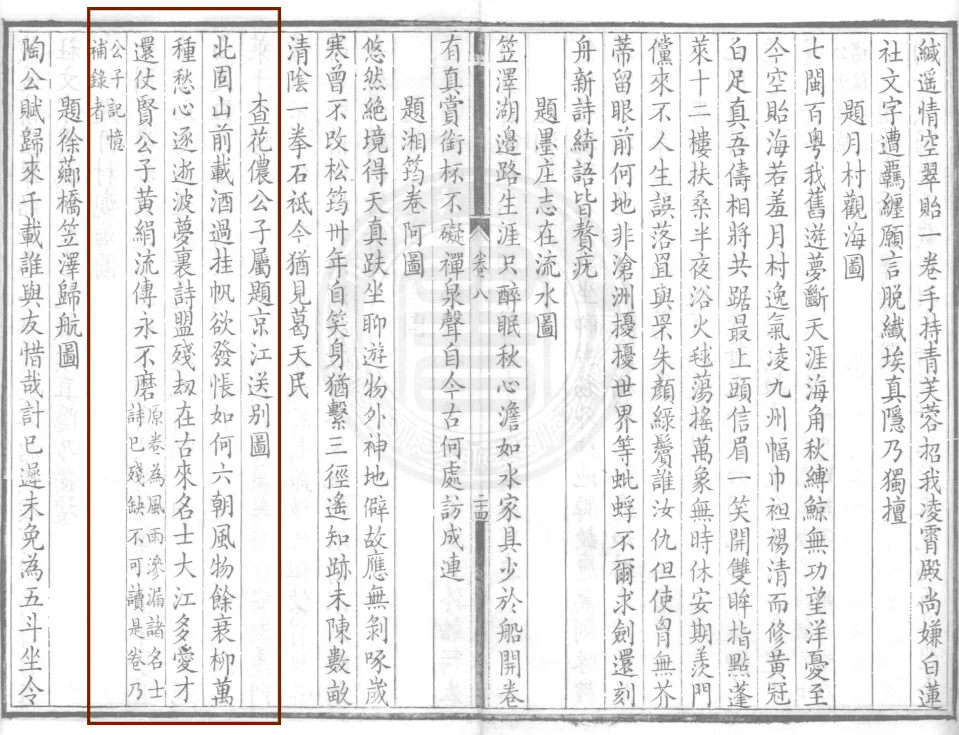 緘遥情空翠貽一卷手持青芙蓉招我凌霄殿尚嫌白蓮
社文字遭羈纏願言脱纖埃真隱乃獨擅
題月村觀海圖
七閩百粤我舊遊夢斷天涯海角秋縛鯨無功望洋憂至
今空貽海若羞月村逸氣凌九州幅巾袒裼清而修黄冠
白足真吾儔相將共踞最上頭信眉一笑開雙眸指點蓬
萊十二樓扶桑半夜浴火毬蕩搖萬象無時休安期羨門
儻來不人生誤落罝與罘朱顔緑鬢誰汝仇但使胷無芥
蒂留眼前何地非滄洲擾擾世界等蚍蜉不爾求劍還刻
舟新詩綺語皆贅疣
題墨庄志在流水圖
笠澤湖邊路生涯只醉眠秋心澹如水家具少於船開卷
卷八
二十四
有真賞銜杯不礙禪泉聲自今古何處訪成連
題湘筠卷阿圖
悠然絶境得天真趺坐聊遊物外神地僻故應無剝啄歲
寒曾不改松筠卅年自笑身猶繫三徑遙知跡未陳數畝
清陰一拳石祇今猶見葛天民
查花儂公子屬題京江送别圖
北固山前載酒過挂帆欲發悵如何六朝風物餘衰柳萬
種愁心逐逝波夢裏詩盟殘刼在古來名士大江多愛才
還仗賢公子黄絹流傳永不磨原卷為風雨滲漏諸名士
詩已殘缺不可讀是卷乃
公子記憶
補錄者
題徐薌橋笠澤歸航圖
陶公賦歸來千載誰與友惜哉計已遲未免為五斗坐令